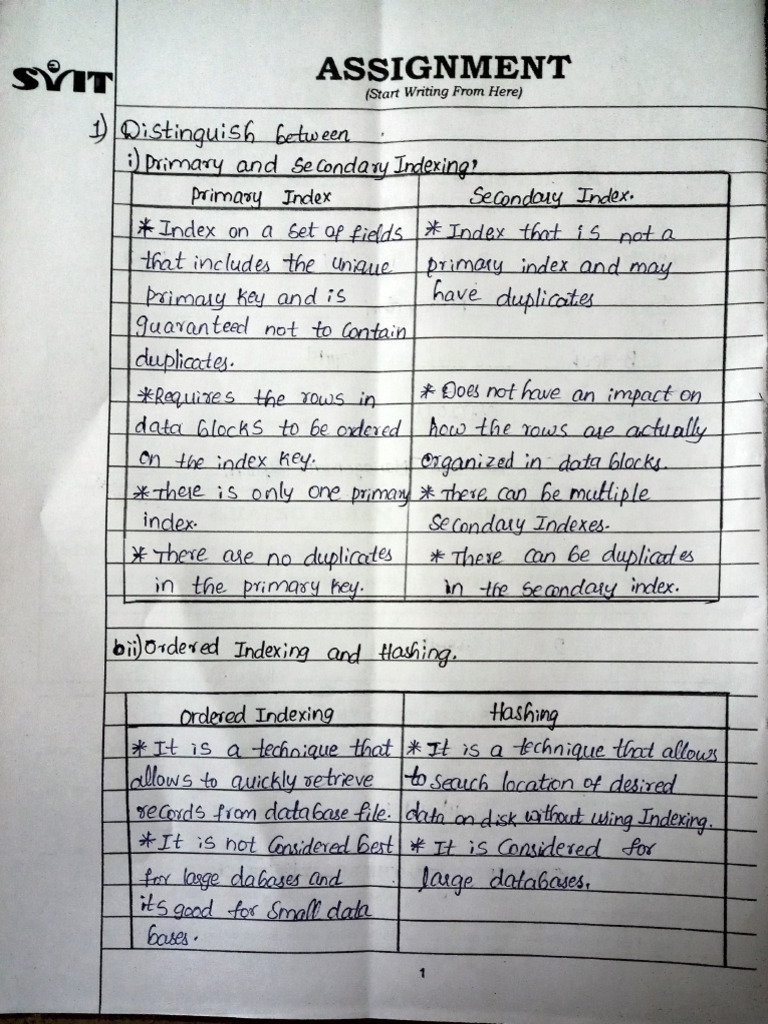 SVIT
ASSIGNMENT
(Start Writing From Here)
1) Distinguish between
i) Primary and Secondary Indexing,
Primary Index
* Index on a set of fields
that includes the unique
primary key and is
guaranteed not to contain
duplicates.
* Requires the rows in
data blocks to be ordered
on the index key.
* There is only one primary
index.
* There are no duplicates
in the primary key.
Secondary Index.
* Index that is not a
primary index and may
have duplicates
* Does not have an impact on
how the rows are actually
organized in data blocks.
* There can be multiple
Secondary Indexes.
* There can be duplicates
in the secondary index.
bii) Ordered Indexing and Hashing.
Ordered Indexing
* It is a technique that
allows to quickly retrieve
records from database file.
* It is not Considered best
for large dabases and
its good for small data
bases.
Hashing
* It is a technique that allows
to search location of desired
data on disk without using Indexing.
* It is Considered for
large databases.
1